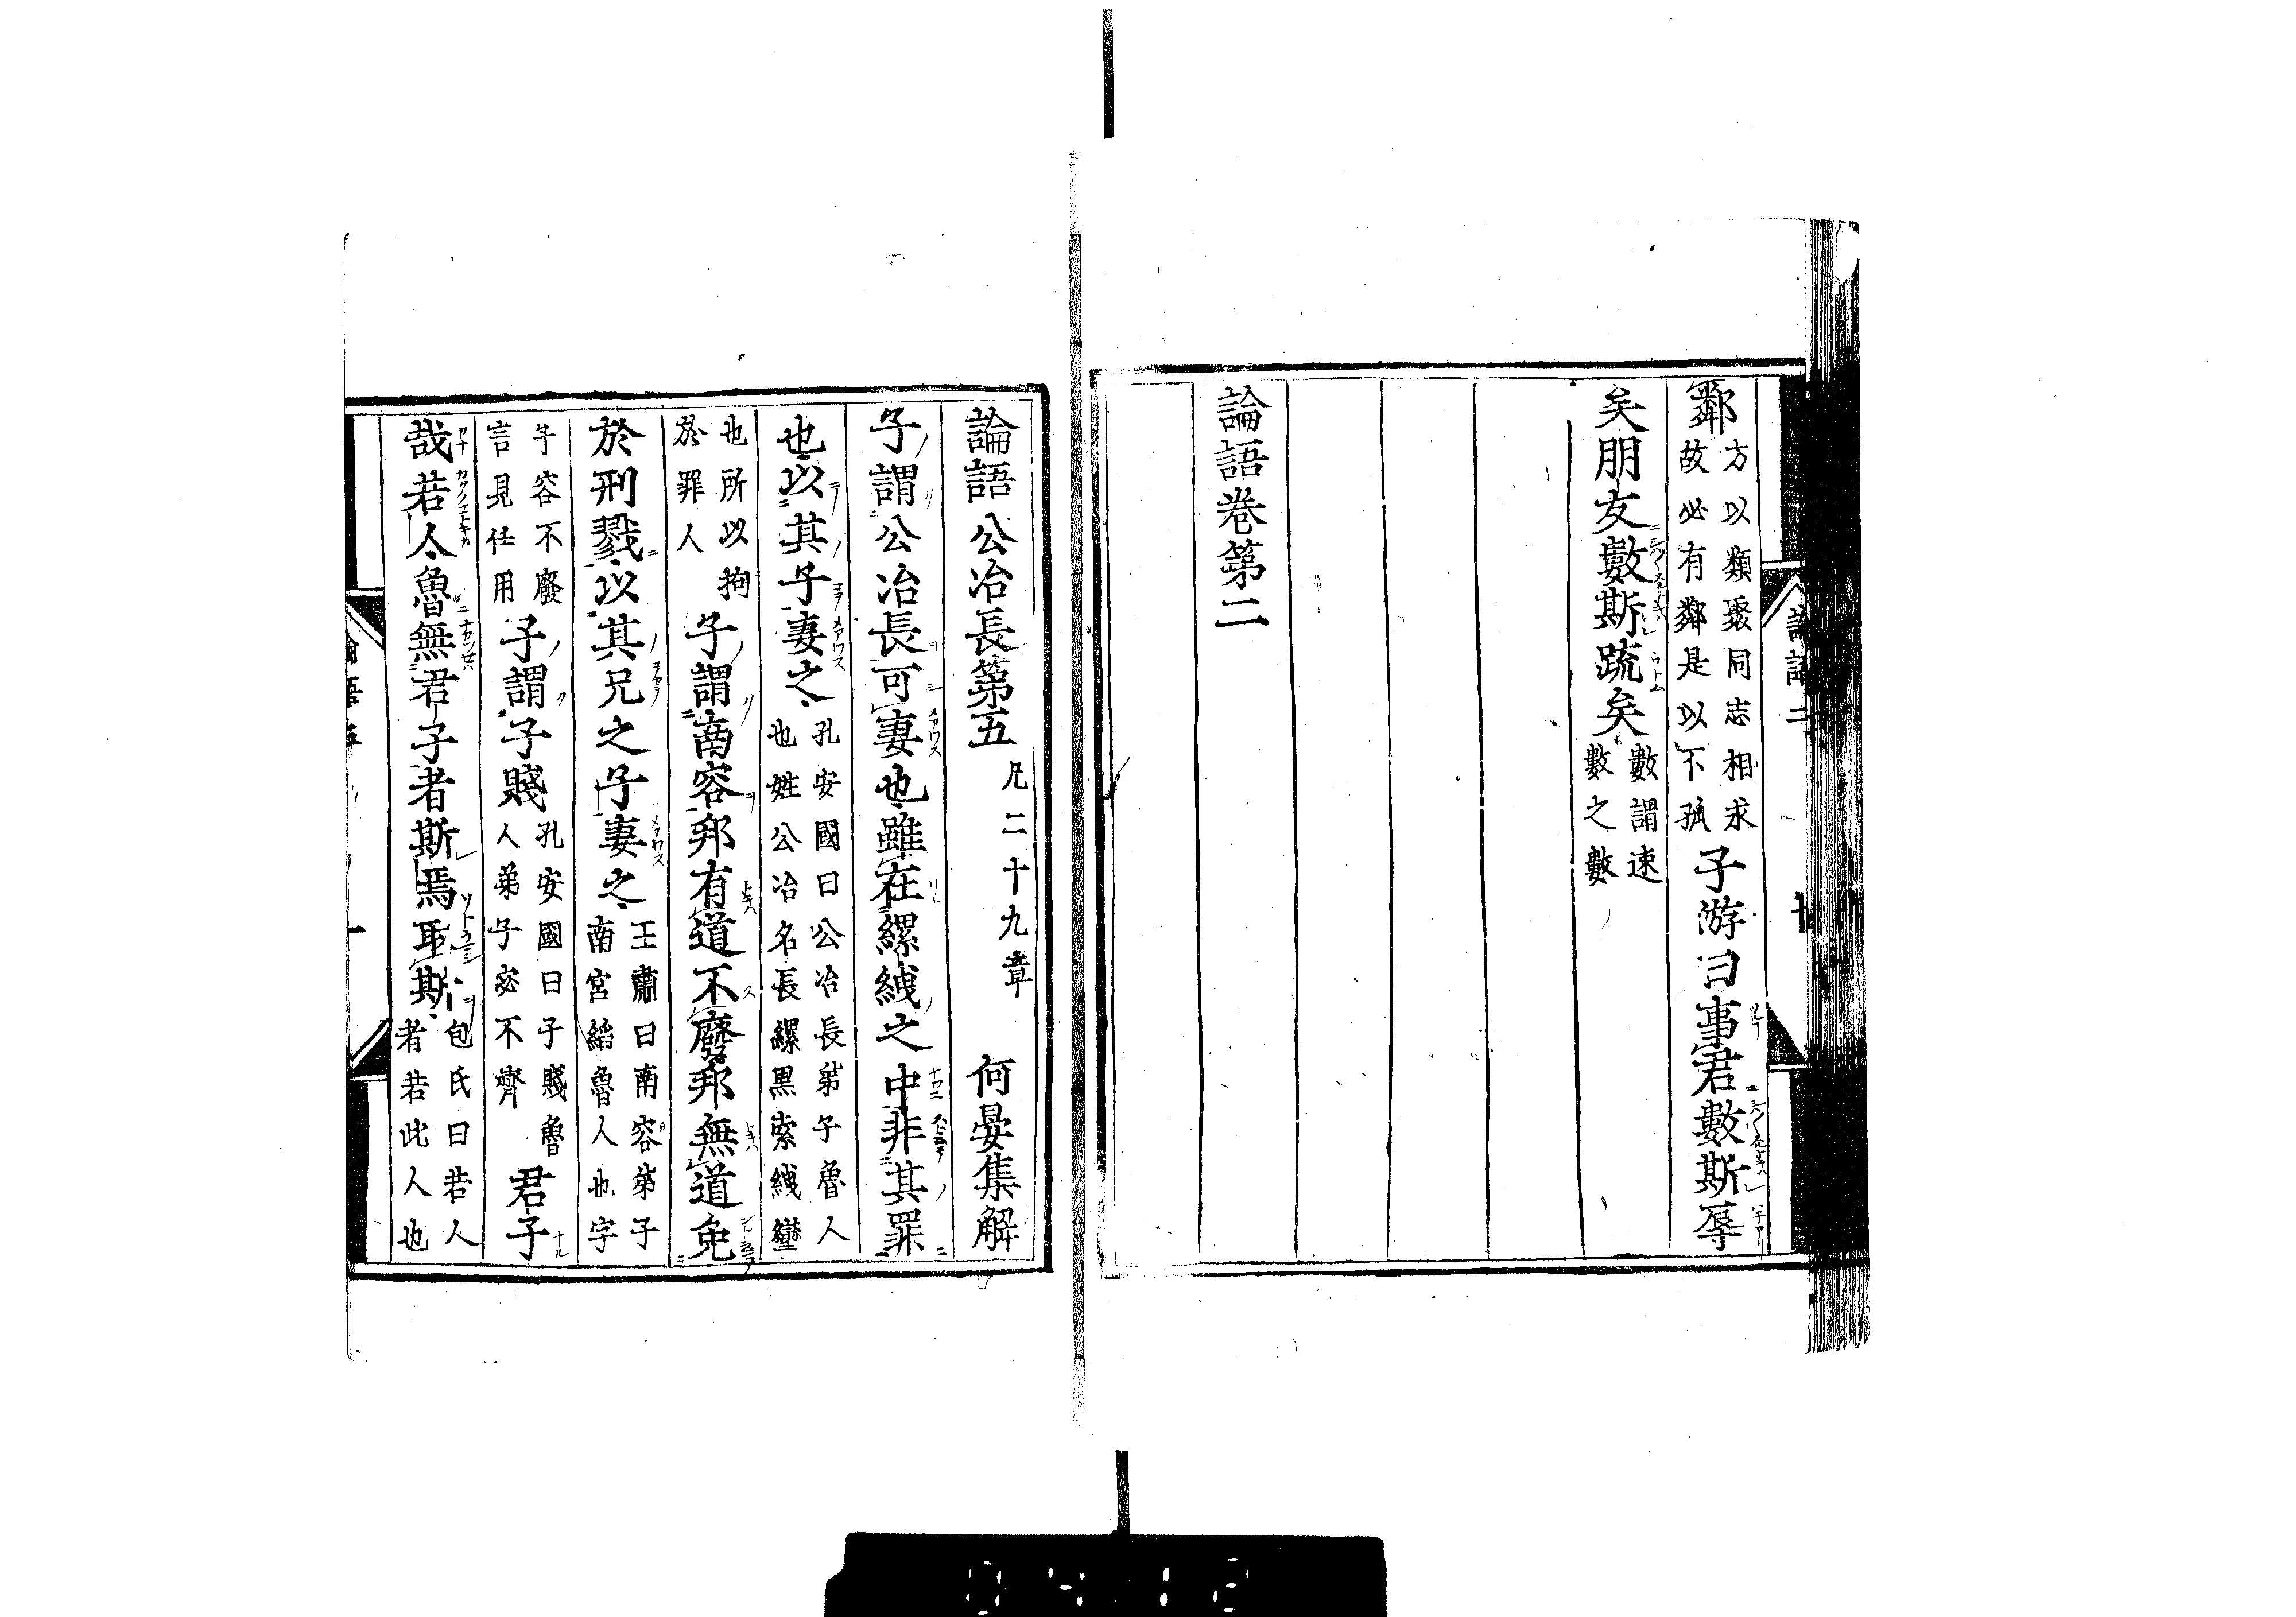 鄰方以類聚同志相求故必有鄰是以不孤子游曰事君數斯辱
矣朋友數斯疏矣數謂速數之數
論語卷第二
論語公冶長第五凡二十九章 何晏集解
子謂公冶長可妻也雖在縲絏之中非其罪
也以其子妻之孔安國曰公冶長弟子魯人也姓公冶名長縲黑索絏攣
也所以拘於罪人子謂南容邦有道不廢邦無道免
於刑戮以其兄之子妻之王肅曰南容弟子南宮縚魯人也字
子容不廢言見任用子謂子賤孔安國曰子賤魯人弟子宓不齊君子
哉若人魯無君子者斯焉取斯包氏曰若人者若此人也